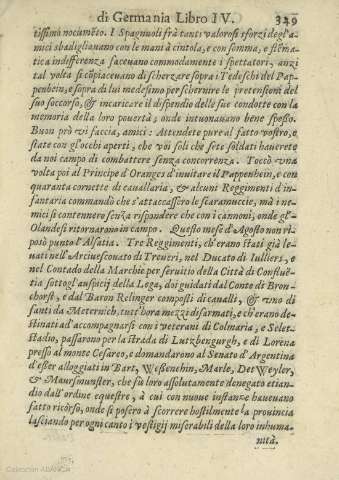 di Germania Libro IV. 349
tissimo nocumẽto. I Spagnuoli frà tanti valorosi sforzi degl'a-
mici sbadigliavano con le mani à cintola, e con somma, e stẽma-
tica indifferenza faceuano commodamente i spettatori, anzi
tal volta si cõpiaceuano di scherzare sopra i Tedeschi del Pap-
penhein, e sopra di lui medesimo per schernire le pretensioni del
suo soccorso, & incaricare il dispendio delle sue condotte con la
memoria della loro pouertà, onde intuonauano bene spesso.
Buon prò vi faccia, amici: Attendete pure al fatto vostro, e
state con gl'occhi aperti, che voi soli che sete soldati hauerete
da noi campo di combattere senza concorrenza. Toccò vna
volta poi al Principe d'Oranges d'inuitare il Pappenhein, e con
quaranta cornette di cauallaria, & alcuni Reggimenti d'in-
fantaria commandò che s'attaccassero le scaramuccie, mà i ne-
mici si contennero senza rispondere che con i cannoni, onde gl'-
Olandesi ritornarono in campo. Questo mese d'Agosto non ri-
posò punto l'Alsatia. Tre Reggimenti, ch'erano stati già le-
uati nell'Arciuescouato di Treueri, nel Ducato di Iulliers, e
nel Contado della Marchie per seruitio della Città di Confluẽ-
tia sotto gl'auspicij della Lega, doi guidati dal Conte di Bron-
chorst, e dal Baron Relinger composti di caualli, & vno di
fanti da Meternich, tutt'hora mezzi disarmati, e ch'erano de-
stinati ad accompagnarsi con i veterani di Colmaria, e Selet-
stadio, passarono per la strada di Lutzbengurgh, e di Lorena
presso al monte Cesareo, e domandarono al Senato d'Argentina
d'esser alloggiati in Bart, Weßenchin, Marle, Det Weyler,
& Maursmunster, che sù loro assolutamente denegato etian-
dio dall'ordine equestre, à cui con nuoue instanze haueuano
fatto ricorso, onde si posero à scorrere hostilmente la prouincia
lasciando per ogni canto i vestigij miserabili della loro inhuma-
nità.
Colección ABANCA